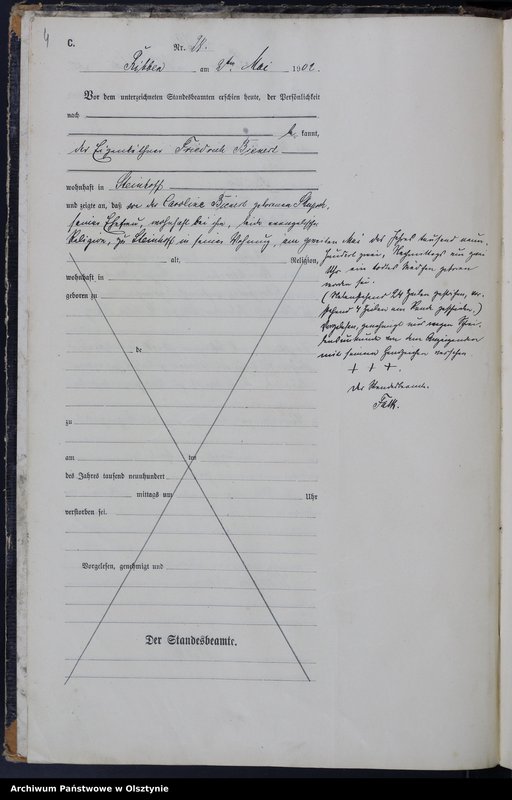 4
C.
Nr.
Ribben am 2ten Mai 1902.
Vor dem unterzeichneten Standesbeamten erschien heute, der Persönlichkeit
nach
kannt,
der Eigenkäthner Friedrich Bienert
wohnhaft in Steinhoff
und zeigte an, daß von der Caroline Bienert geborenen
seiner Ehefrau, wohnhaft bei ihm, beide evangelischer
Religion, zu Steinhoff in seiner Wohnung, am zweiten Mai des Jahres tausend neun-
hundert zwei, Nachmittags um zwei
Uhr ein todtes Mädchen geboren
worden sei.
(Nebenstehend 24 Zeilen gestrichen, vor-
stehend 4 Zeilen am Rande geschrieben.)
Vorgelesen, genehmigt und wegen Schrei-
bensunkunde von dem Anzeigenden
mit seinem Handzeichen versehen.
+ + +.
Der Standesbeamte.
Falk.
alt, Religion,
wohnhaft in
geboren zu
de
zu
am ten
des Jahres tausend neunhundert
mittags um Uhr
verstorben sei.
Vorgelesen, genehmigt und
Der Standesbeamte.
Archiwum Państwowe w Olsztynie